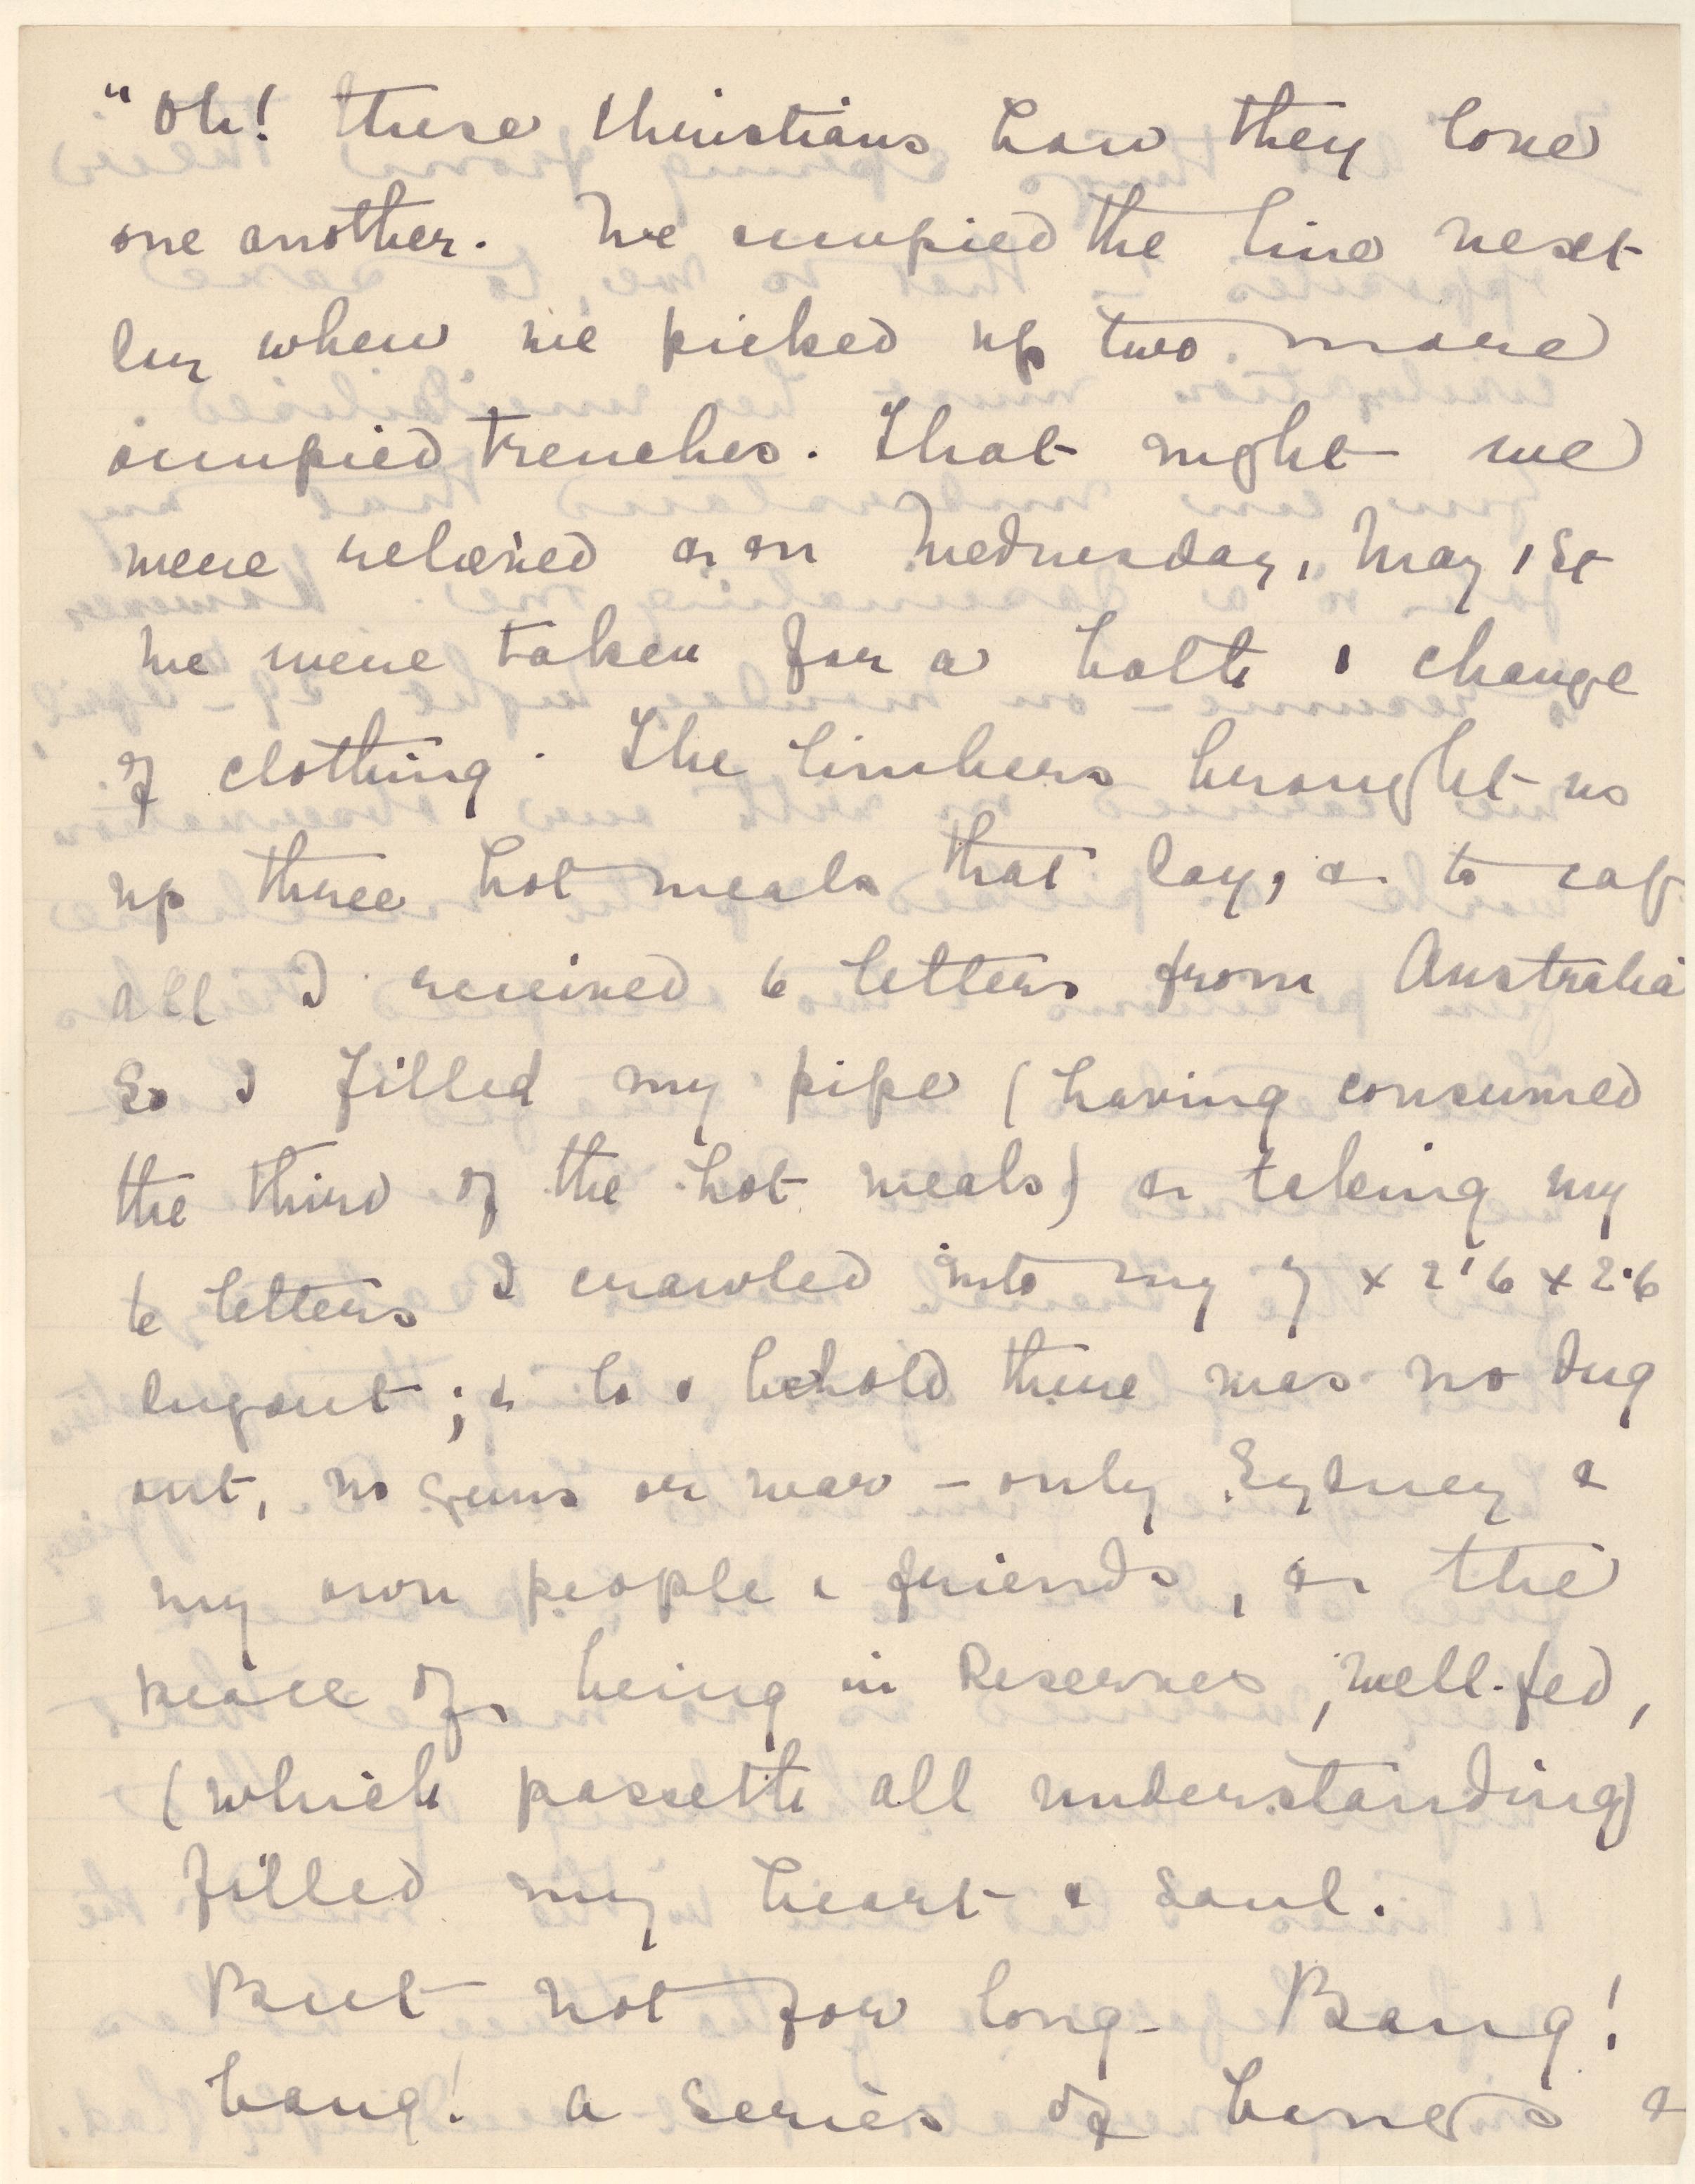 "Oh! these Christians how they love
one another. We occupied the line next
day when we picked up two more
occupied trenches. That night we
were relieved & on Wednesday, May 1st
we were taken for a bath & change
of clothing. The limbers brought us
up three hot meals that day, & to cap
all I received 6 letters from Australia
So I filled my pipe (having consumed
the third of the hot meals) & taking my
6 letters I crawled into my 7 x 2'6 x 2'6
dugout; & lo & behold there was no dug
out, no guns or war - only Sydney &
my own people & friends, & the
peace of being in Reserves, well-fed,
(which passeth all understanding)
filled my heart & soul.
But not for long. Bang!
bang! a series of bangs &